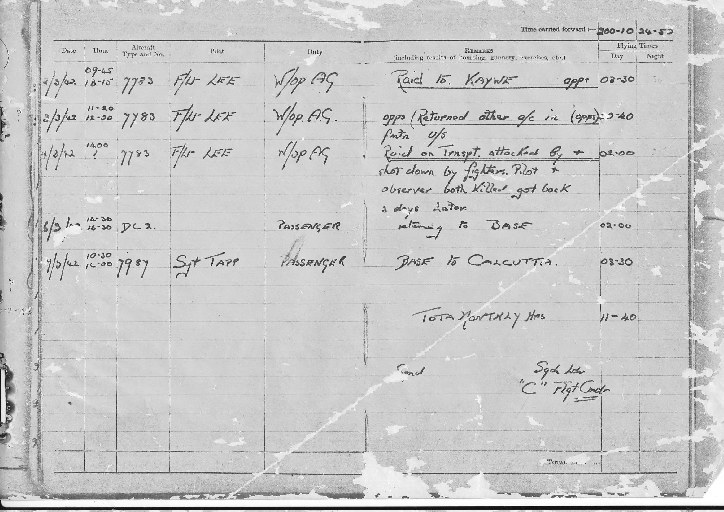 Time carried forward :— 200-10 24-50
Date Hour Aircraft Type and No. Pilot Duty Remarks (including results of bombing, gunnery, exercises, etc.) Flying Times Day Night
2/3/42 09-45 7783 F/Lt LEE W/op AG Raid to KAYWE opps 03-30
2/3/42 11-20 12-30 7783 F/Lt LEE W/op AG. opps (Returned other a/c in (opps)
fmtn U/S
14.00 7783 F/Lt LEE W/op AG Raid on Trnspt. attacked By + 02-00
shot down by fighters. Pilot +
observer both Killed got back
2 days Later
16-30 DC2. PASSENGER returning to BASE 02-00
7/3/42 10-30 14-00 7987 Sgt TAPP PASSENGER BASE to CALCUTTA. 03-30
TOTAL MONTHLY Hrs 11-40
Signed Sqd Ldr
"C" Flgt Cmdr
Total